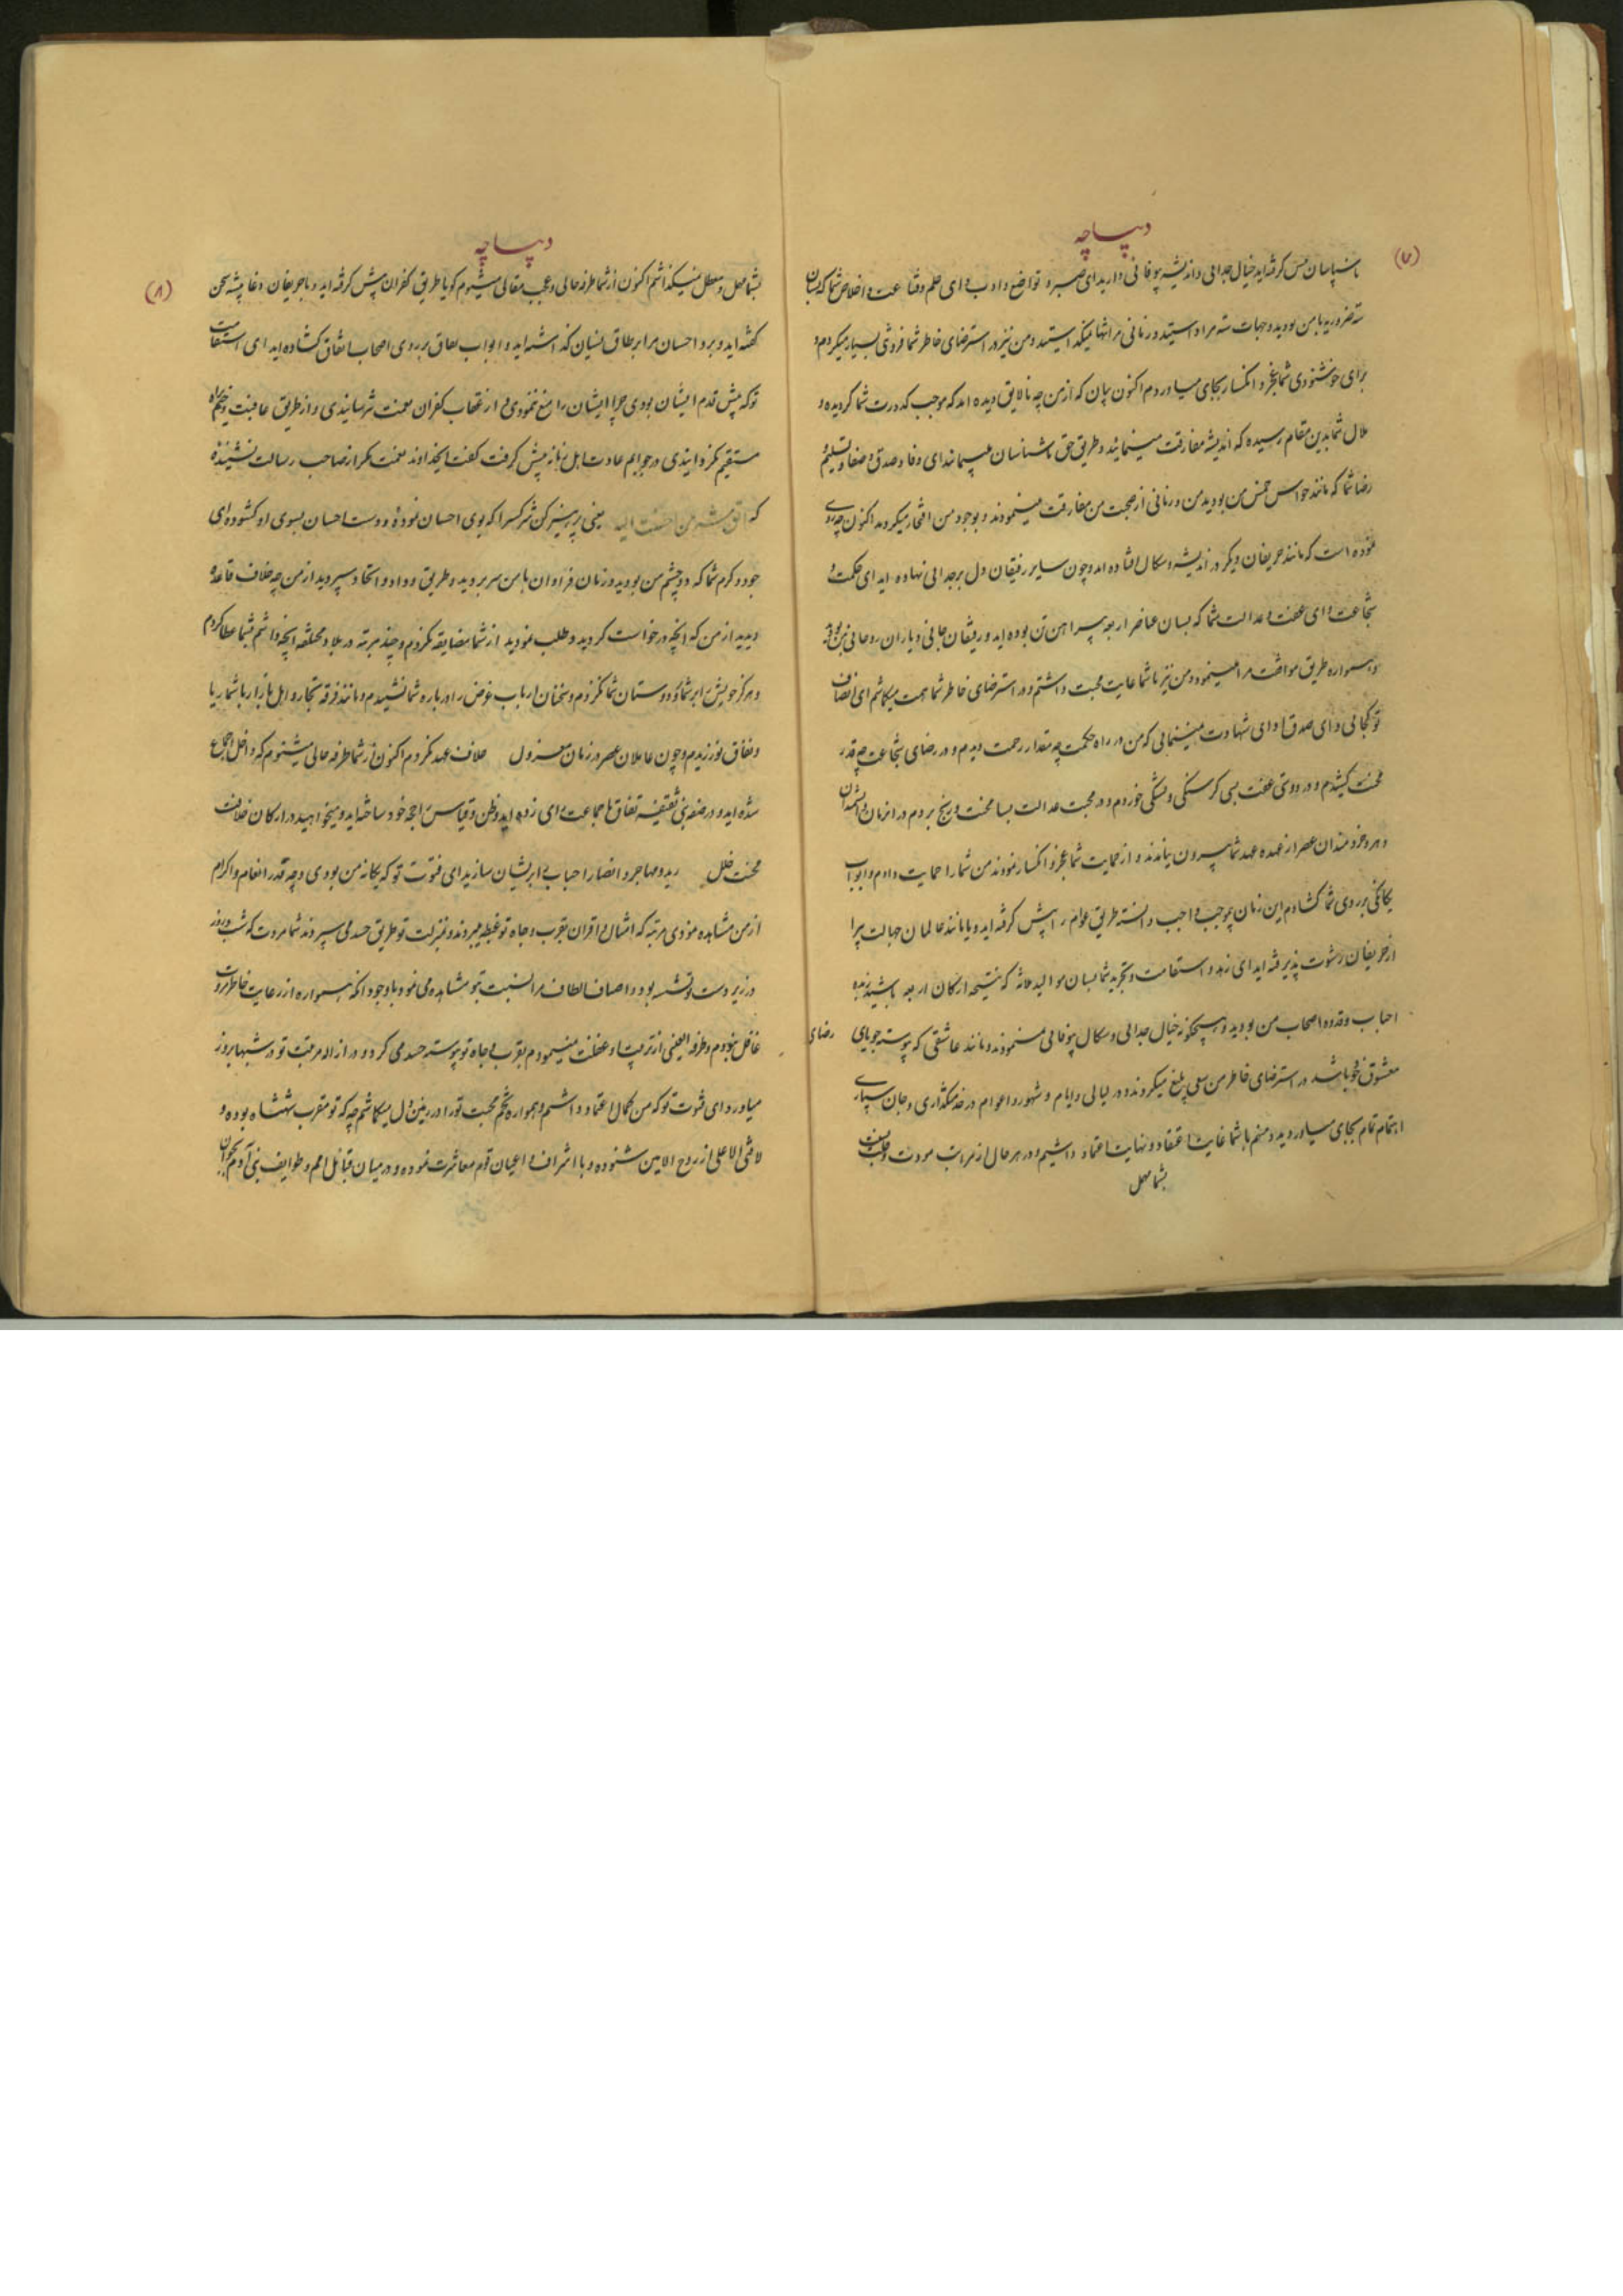 (۷)
دیباچه
ناسپاسان پیش گرفته‌اید خیال جدائی و اندیشه بیوفائی دارید ای صبر و تواضع و ادب و ای حلم و قناعت و اخلاص شما که بسان
سته ضروریه با من بودید و جهات سته مرا و زمانی مرا تنها نمیگذاشتید و من نیز در استرضای خاطر شما فروتنی بسیار میکردم و
برای خوشنودی شما عجز و انکسار بجای میاوردم اکنون بیان کنید از من چه نالایق دیده‌اند که موجب کدورت شما گردیده و
ملال شما بدین مقام رسیده که اندیشه مفارقت مینمائید و طریق حق ناشناسان میپیمائید ای وفا و صدق و صفا و تسلیم و
رضا شما که مانند حواس خمس من بودید من و زمانی از صحبت من مفارقت نمینمودند و بوجود من افتخار میکردند اکنون چه روی
نموده است که مانند حریفان دیگر در اندیشه و سکال افتاده‌اند و چون سایر رفیقان دل بر جدائی نهاده‌اید ای حکمت و
شجاعت و ای عفت و عدالت شما که بسان عناصر اربعه پیراهن تن بوده‌اید و رفیقان جانی و یاران روحانی من بوده
و همواره طریق موافقت مرا مینمود و من نیز با شما غایت محبت داشتم و در استرضای خاطر شما همت میگماشتم ای انصاف
تو کجائی و ای صدق و ای شهادت مینمائی که من در راه حکمت چه مقدار زحمت دیدم و در رضای شجاعت چه قدر
محنت کشیدم و در دوستی عفت بسی گرسنگی و تشنگی خوردم و در محبت عدالت بسا محنت و رنج بردم در انزمان دانشمندان
دهر و خردمندان عصر از عهده عهد شما بیرون نیامدند و از حمایت شما عجز و انکسار نمودند من شما را حمایت دادم و ابواب
یگانگی بر روی شما گشادم این زمان چه موجب واجب دانسته طریق عوام را پیش گرفته‌اید و یا مانند عالمان جهالت پیرا
از حریفان رشوت پذیرفته‌اید ای زهد و استقامت و تجربه شما بسان موالید ثلاثه که نتیجه ارکان اربعه باشید زبده
احباب و قدوه اصحاب من بودید و هیچگونه خیال جدائی و سکال بیوفائی نمینمودند و مانند عاشقی که پیوسته جویای رضای
معشوق خود باشد در استرضای خاطر من سعی بلیغ میکردند و در لیالی و ایام و شهور و اعوام در خدمتگذاری و جان سپاری
اهتمام تمام بجای میاوردید و منهم با شما غایت اعتقاد و نهایت اعتماد داشتم و در هر حال از مراتب مودت و
بشما مهمل
(۸)
دیباچه
بشما مهمل و معطل نمیگذاشتم اکنون از شما طرفه حالی و عجب مقالی میشنوم گویا طریق کفران پیش گرفته‌اید و با حریفان دغا پیشه سخن
گفته‌اید و برد احسان مرا بر طاق نسیان گذاشته‌اید و ابواب نفاق بر روی اصحاب اتفاق گشاده‌اید ای استقامت
تو که پیش قدم ایشان بودی چرا ایشان را منع ننمودی و از عقاب کفران نعمت نترسانیدی و از طریق عافیت وخیم
مستقیم نکردانیدی در جوابم عادت اهل زمانه پیش گرفت گفت ایخداوند نعمت مگر از صاحب رسالت نشنیده
که اتق شر من احسنت الیه یعنی پرهیز کن شر کسیرا که بوی احسان نموده و دست احسان بسوی او گشوده ای
جود و کرم شما که دو چشم من بودید و زمان فراوان با من بسر بردید و طریق وداد و اتحاد سپردید از من چه خلاف قاعده
دیدید از من که آنچه درخواست کردید و طلب نمودید از شما مضایقه نکردم و چند مرتبه در بلاد مختلفه آنچه داشتم بشما عطا کردم
و هرگز خویش را بر شما و دوستان شما نکزدم و سخنان ارباب غرض را در باره شما نشنیدم و مانند فرقه تجار و اهل بازار با شما ریا
و نفاق نورزیدم و چون عاملان عصر در زمان معزول خلاف عهد نکردم اکنون از شما طرفه حالی میشنوم که داخل اجماع
شده‌اید و در صفه بنی ثقیفه نفاق با جماعت رای زده‌اید و ظن و قیاس را حجه خود ساخته‌اید و میخواهید در ارکان خلافت
محنت خلل رید و مهاجر و انصار احباب را پریشان سازید ای فتوت تو که یگانه من بودی و چه قدر انعام و اکرام
از من مشاهده نمودی مرتبه که امثال و اقران بتقرب و جاه تو غبطه میبردند و بمنزلت تو طریق حسد می سپردند شما مروت که شب و روز
در زیر دست تو نشسته بود و اصناف الطاف مرا نسبت بتو مشاهده می نمود با وجود انکه همواره از رعایت خاطر مروت
غافل نبودم و طرفة العینی از تربیت او غفلت نمینمودم بقرب و جاه تو پیوسته حسد می کرد و در ازاله مرتبت تو در شبها بروز
میاورد ای فتوت تو که من کمال اعتماد داشتم و همواره تخم محبت تو را در زمین دل میکاشتم چه که تو مقرب شهنشاه بوده و
لا فتی الا علی از روح الامین شنوده و با اشراف و اعیان قوم معاشرت نموده و در میان قبائل امم و طوایف بنی آدم